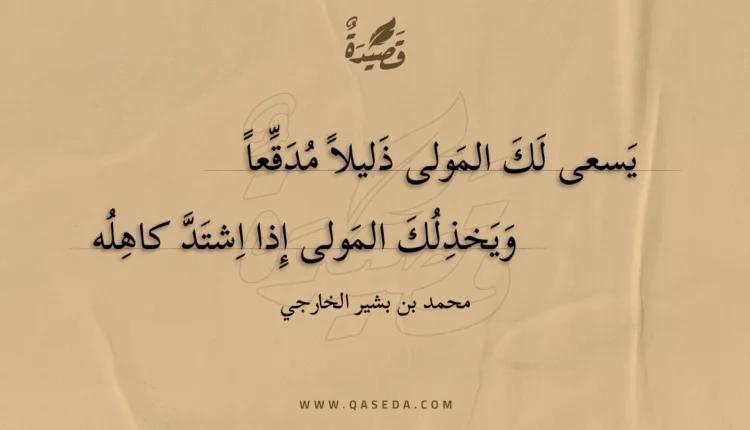 قَصِيدَةٌ
يَسعى لَكَ المَولى ذَليلاً مُدَقِّعاً
وَيَخذِلُكَ المَولى إِذا اِشتَدَّ كاهِلُه
محمد بن بشير الخارجي
WWW.QASEDA.COM